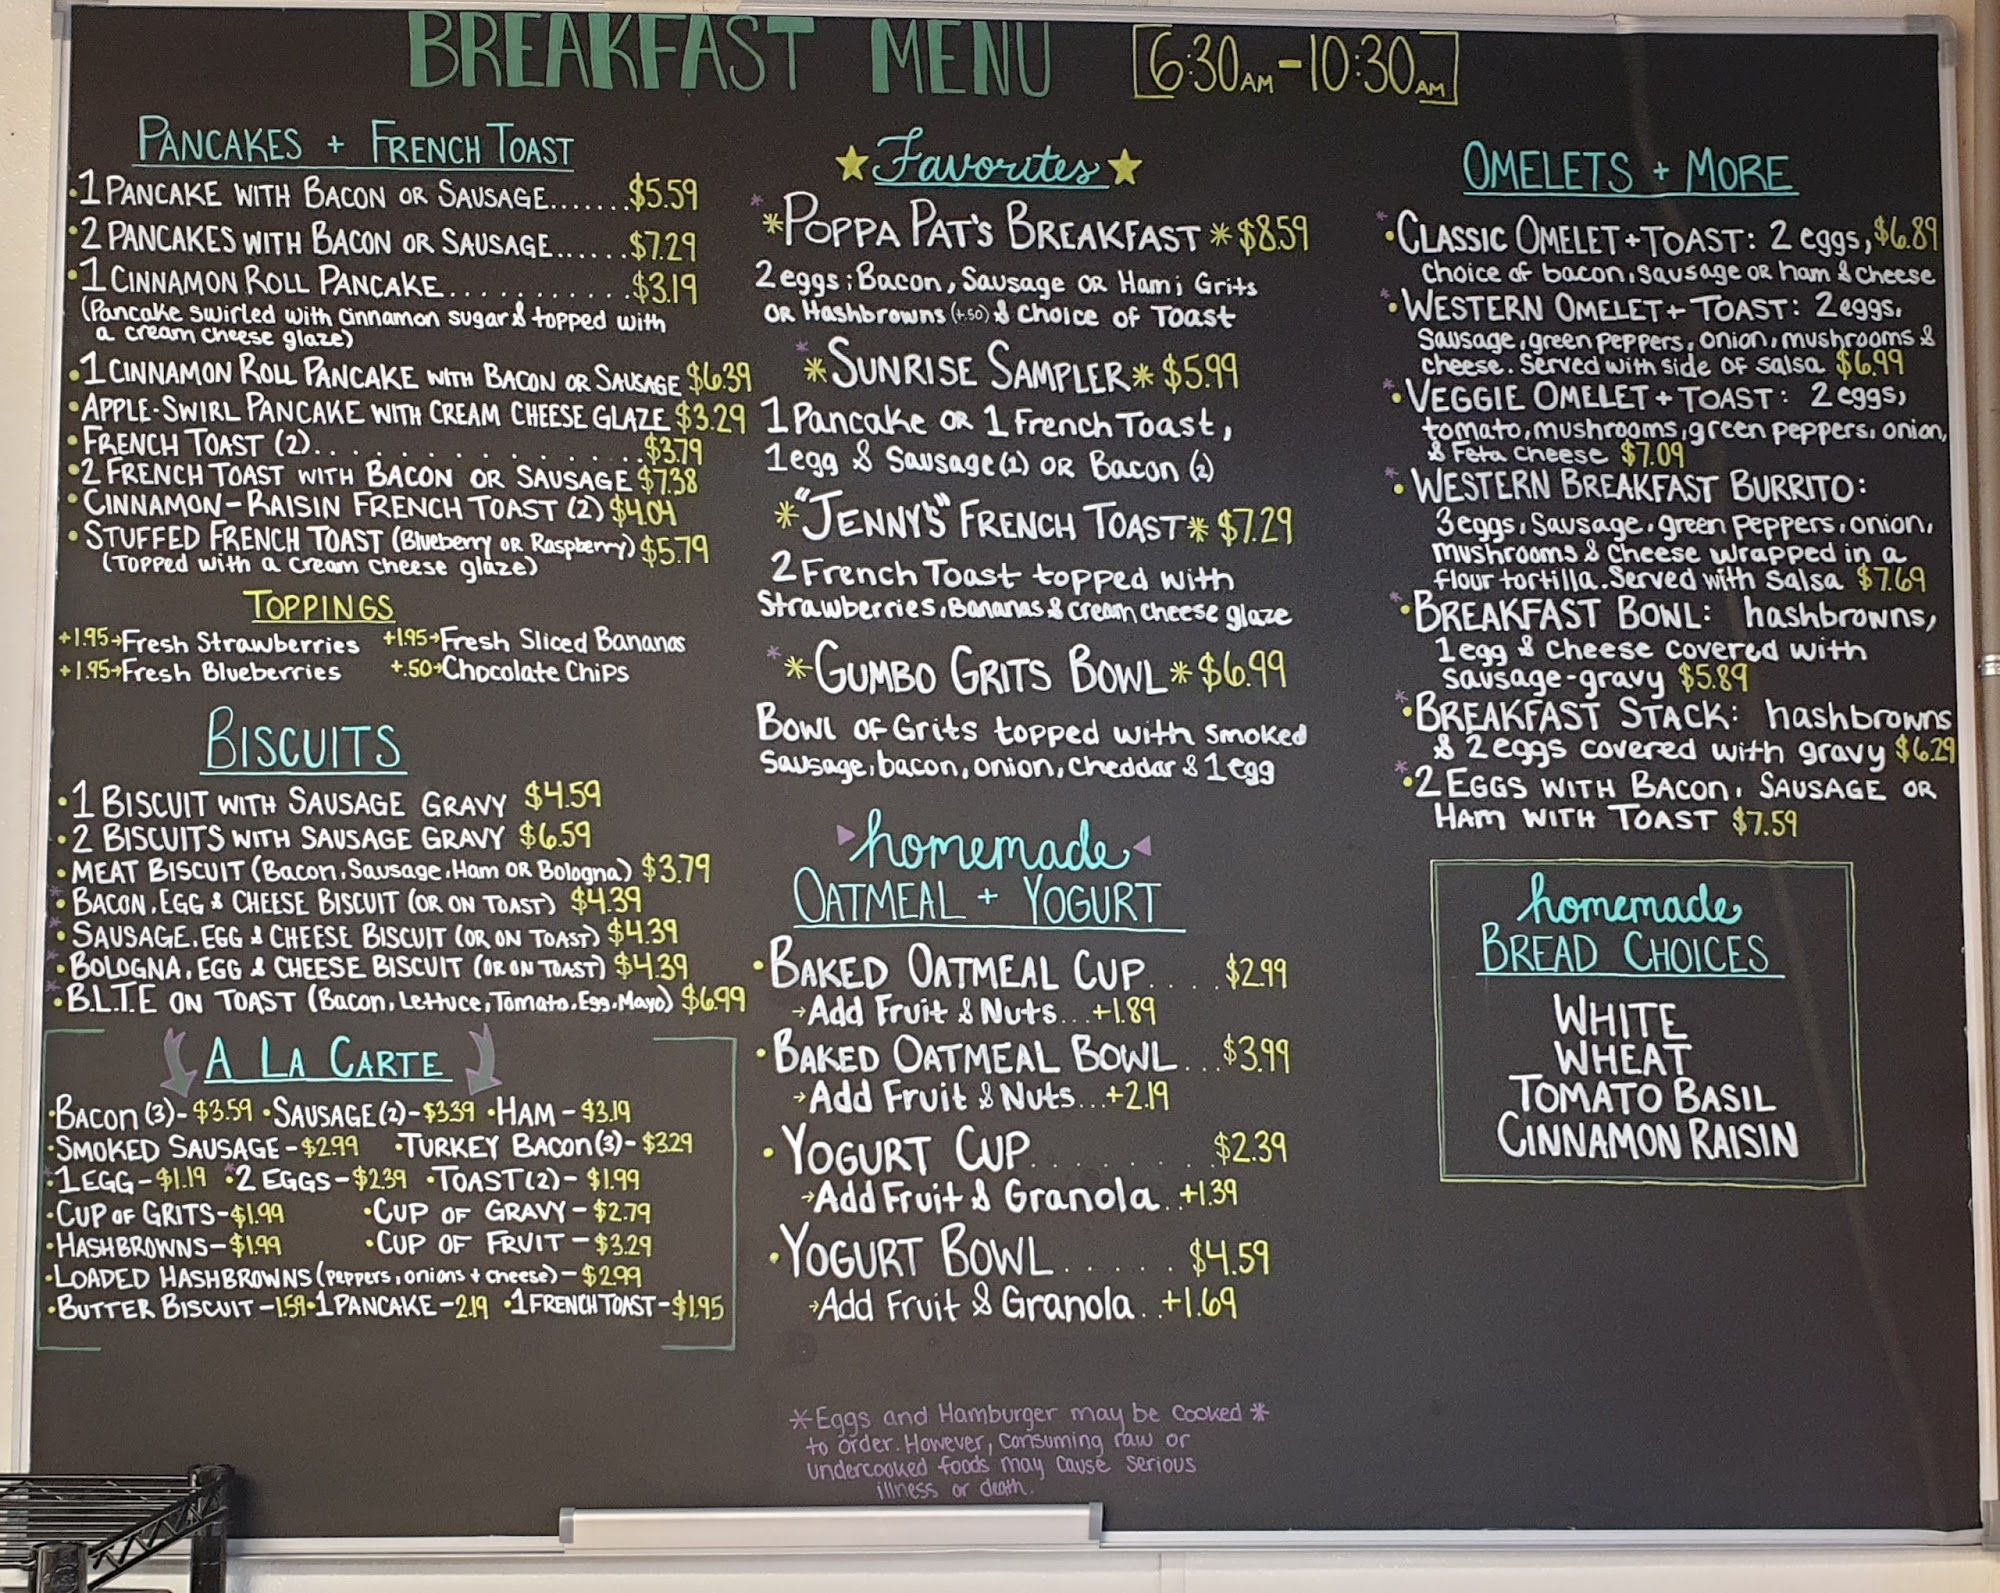 BREAKFAST MENU [6:30AM-10:30AM]
PANCAKES + FRENCH TOAST
•1 PANCAKE WITH BACON OR SAUSAGE.......$5.59
•2 PANCAKES WITH BACON OR SAUSAGE......$7.29
•1 CINNAMON ROLL PANCAKE...........$3.19
(Pancake swirled with cinnamon sugar & topped with
a cream cheese glaze)
•1 CINNAMON ROLL PANCAKE WITH BACON OR SAUSAGE $6.39
•APPLE-SWIRL PANCAKE WITH CREAM CHEESE GLAZE $3.29
•FRENCH TOAST (2)..................$3.79
•2 FRENCH TOAST WITH BACON OR SAUSAGE $7.38
•CINNAMON-RAISIN FRENCH TOAST (2) $4.04
•STUFFED FRENCH TOAST (Blueberry OR Raspberry) $5.79
(TOPPED with a cream cheese glaze)
TOPPINGS
+1.95→Fresh Strawberries +1.95→Fresh Sliced Bananas
+1.95→Fresh Blueberries +.50→Chocolate Chips
BISCUITS
•1 BISCUIT WITH SAUSAGE GRAVY $4.59
•2 BISCUITS WITH SAUSAGE GRAVY $6.59
•MEAT BISCUIT (Bacon, Sausage, Ham OR Bologna) $3.79
*•BACON, EGG & CHEESE BISCUIT (OR ON TOAST) $4.39
*•SAUSAGE, EGG & CHEESE BISCUIT (OR ON TOAST) $4.39
*•BOLOGNA, EGG & CHEESE BISCUIT (OR ON TOAST) $4.39
*•B.L.T.E ON TOAST (Bacon, Lettuce, Tomato, Egg, Mayo) $6.99
A LA CARTE
•BACON (3)-$3.59 •SAUSAGE (2)-$3.39 •HAM-$3.19
•SMOKED SAUSAGE-$2.99 •TURKEY BACON (3)-$3.29
*•1 EGG-$1.19 *•2 EGGS-$2.39 •TOAST (2)-$1.99
•CUP OF GRITS-$1.99 •CUP OF GRAVY-$2.79
•HASHBROWNS-$1.99 •CUP OF FRUIT-$3.29
•LOADED HASHBROWNS (peppers, onions + cheese)-$2.99
•BUTTER BISCUIT-1.59 •1 PANCAKE-2.19 •1 FRENCH TOAST-$1.95
★Favorites★
**POPPA PAT'S BREAKFAST* $8.59
2 eggs; Bacon, Sausage OR Ham; Grits
OR Hashbrowns (+.50) & Choice of Toast
**SUNRISE SAMPLER* $5.99
1 Pancake OR 1 French Toast,
1 egg & Sausage (1) OR Bacon (2)
*"JENNY'S" FRENCH TOAST* $7.29
2 French Toast topped with
Strawberries, Bananas & cream cheese glaze
**GUMBO GRITS BOWL* $6.99
Bowl of Grits topped with smoked
Sausage, bacon, onion, cheddar & 1 egg
homemade
OATMEAL + YOGURT
•BAKED OATMEAL CUP....$2.99
→Add Fruit & Nuts...+1.89
•BAKED OATMEAL BOWL...$3.99
→Add Fruit & Nuts...+2.19
•YOGURT CUP.........$2.39
→Add Fruit & Granola..+1.39
•YOGURT BOWL.....$4.59
→Add Fruit & Granola..+1.69
*Eggs and Hamburger may be cooked*
to order. However, consuming raw or
undercooked foods may cause serious
illness or death.
OMELETS + MORE
*•CLASSIC OMELET + TOAST: 2 eggs, $6.89
choice of bacon, sausage OR ham & cheese
*•WESTERN OMELET + TOAST: 2 eggs,
Sausage, green peppers, onion, mushrooms &
cheese. Served with side of salsa $6.99
*•VEGGIE OMELET + TOAST: 2 eggs,
tomato, mushrooms, green peppers, onion,
& Feta cheese $7.09
*•WESTERN BREAKFAST BURRITO:
3 eggs, Sausage, green peppers, onion,
mushrooms & cheese wrapped in a
flour tortilla. Served with salsa $7.69
*•BREAKFAST BOWL: hashbrowns,
1 egg & cheese covered with
sausage-gravy $5.89
*•BREAKFAST STACK: hashbrowns
& 2 eggs covered with gravy $6.29
*•2 EGGS WITH BACON, SAUSAGE OR
HAM WITH TOAST $7.59
homemade
BREAD CHOICES
WHITE
WHEAT
TOMATO BASIL
CINNAMON RAISIN